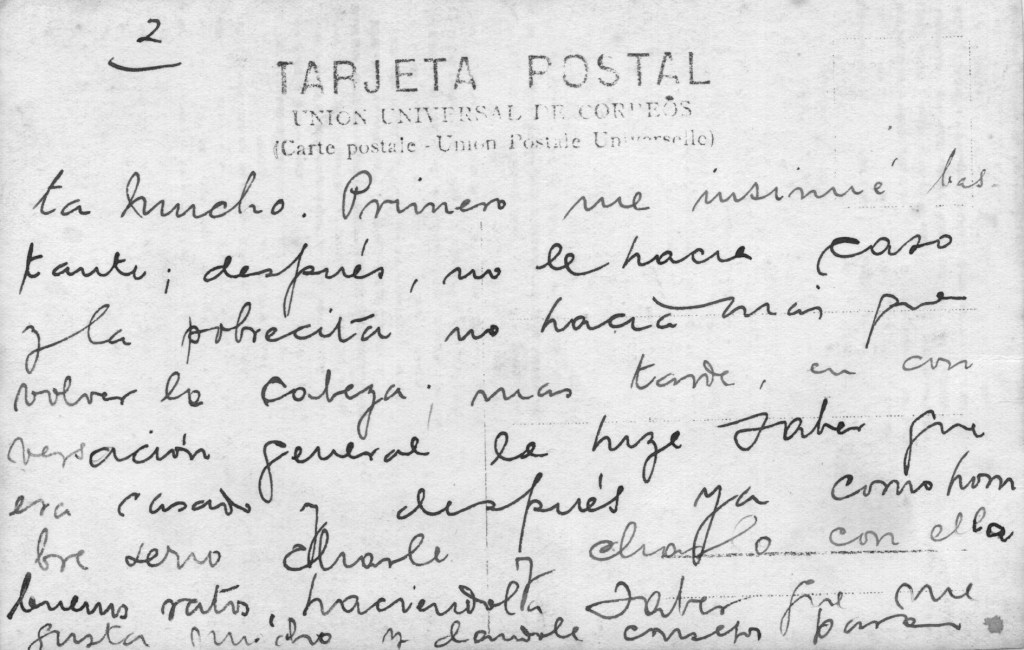 2
TARJETA POSTAL
UNION UNIVERSAL DE CORREOS
(Carte postale - Union Postale Universelle)
ta mucho. Primero me insinué bas-
tante; después, no le hacia caso
y la pobrecita no hacia mas que
volver la cabeza; mas tarde, en con
versación general le hize saber que
era casado y después ya como hom
bre serio charle y charlo con ella
buenos ratos, haciendola saber que me
gusta mucho y dandole consejos para